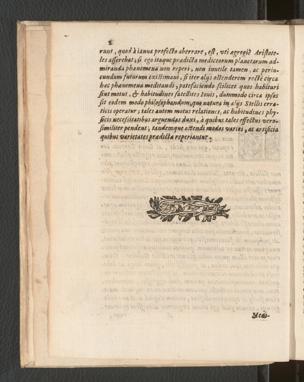 8
runt, quod à ianua profecto aberrare, est, vti agregiè Aristote-
les asserebat, si ego itaque prædicta mediceorum planetarum ad-
miranda phænomena non reperi, non inutile tamen, ac periu-
cundum futurum existimaui, si iter alijs ostenderem rectè circa
hæc phænomena meditandi, patefaciendo scilicet quos habituri
sint motus, & habitudines satellites Iouis, dummodo circa ipsos
sit eodem modo philosophandum, quo natura in alijs Stellis erra-
ticis operatur; tales autem motus relatiuos, ac habitudines phy-
sicis necessitatibus arguendas duxi, à quibus tales effectus vero-
similiter pendent, tandemque ostendo modos varios, ac artificia
quibus varietates prædictæ reperiantur.